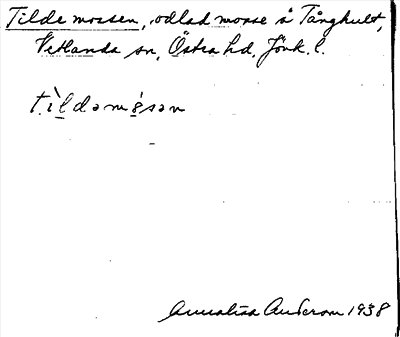 Tilde mossen, odlad mosse å Tånghult,
Vetlanda sn, Östra hd. Jönk. l.
tìldəmósən
Annalisa Anderson 1938